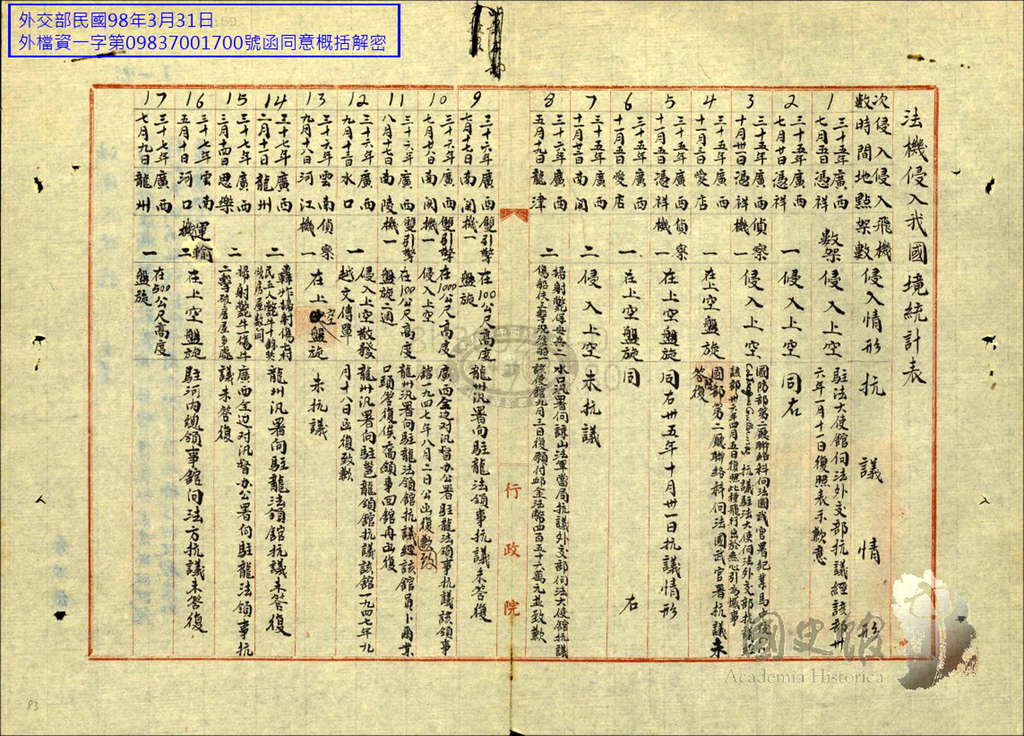 外交部民國98年3月31日
外檔資一字第09837001700號函同意概括解密
法機侵入我國境統計表
次數 侵入時間 侵入地點 飛機架數 侵入情形 抗議情形
1 三十五年七月五日 廣西憑祥 數架 侵入上空 駐法大使館向法外交部抗議經該部卅六年一月十一日復照表示歉意
2 三十五年七月廿日 廣西憑祥 一 侵入上空 同右
3 三十五年十月卅一日 廣西憑祥 偵察機一 侵入上空
4 三十五年十一月三日 廣西愛店 一 在上空盤旋 國防部第二廳聯絡科向法國武官署抗議未答復
5 三十五年十一月五日 廣西憑祥 偵察機一 在上空盤旋 同右卅五年十月卅一日抗議情形
6 三十五年十一月五日 廣西愛店 一 在上空盤旋 同右
7 三十五年 廣西南關 二 侵入上空 未抗議
8 三十六年五月九日 廣西龍津 二
9 三十六年七月十七日 廣西南關 雙引擎機一 在100公尺高度盤旋 龍州汛署向駐龍法領事抗議未答復
10 三十六年七月廿八日 廣西南關 雙引擎機一 在1000公尺高度侵入上空 廣西全边对汛督办公署駐龍法領事抗議該領事館一九四七年八月二日公函復致歉
11 三十六年八月十六日 廣西南陵 雙引擎機一 在100公尺高度盤旋二週 龍州汛署向駐龍法領館抗議經該館員卜爾業口頭答復俟高領事回館再函復
12 三十六年九月十三日 廣西水口 一 侵入上空散發越文傳單 龍州汛署向駐邕龍領館抗議該館一九四七年九月十八日函復致歉
13 三十六年九月十八日 雲南河江 偵察機一 在上空盤旋 未抗議
14 三十七年二月十一日 廣西龍州 二 龍州汛署向駐龍法領館抗議未答復
15 三十七年三月十四日 廣西思樂 二 掃射斃牛傷牛二擊破房屋多處 廣西全边对汛督办公署向駐龍法領事抗議未答復
16 三十七年五月十日 雲南河口 運輸機二 在上空盤旋 駐河內總領事館向法方抗議未答復
17 三十七年七月九日 廣西龍州 一 在500公尺高度盤旋
行政院
國史館
Academia Historica
83